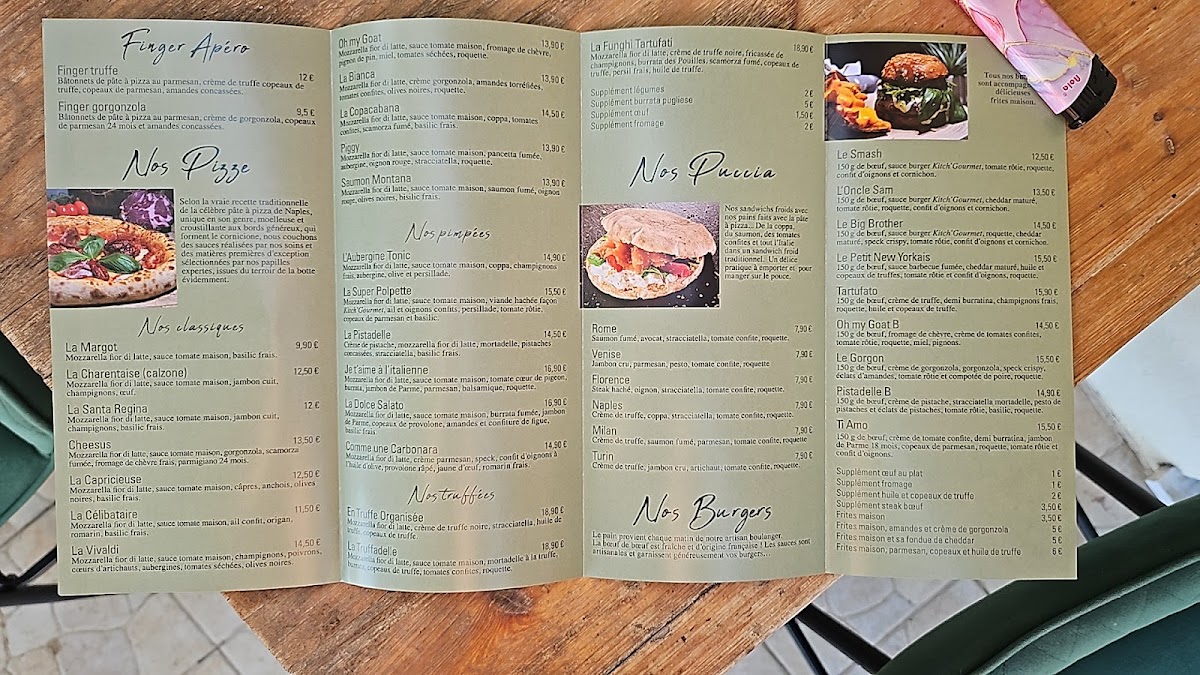 Finger Apéro
Finger truffe 12 €
Bâtonnets de pâte à pizza au parmesan, crème de truffe copeaux de
truffe, copeaux de parmesan, amandes concassées.
Finger gorgonzola 9,5 €
Bâtonnets de pâte à pizza au parmesan, crème de gorgonzola, copeaux
de parmesan 24 mois et amandes concassées.
Nos Pizze
Selon la vraie recette traditionnelle
de la célèbre pâte à pizza de Naples,
unique en son genre, moelleuse et
croustillante aux bords généreux, qui
forment le cornicione, nous couchons
des sauces réalisées par nos soins et
des matières premières d'exception
sélectionnées par nos papilles
expertes, issues du terroir de la botte
évidemment.
Nos classiques
La Margot 9,90 €
Mozzarella fior di latte, sauce tomate maison, basilic frais.
La Charentaise (calzone) 12,50 €
Mozzarella fior di latte, sauce tomate maison, jambon cuit,
champignons, œuf.
La Santa Regina 12 €
Mozzarella fior di latte, sauce tomate maison, jambon cuit,
champignons, basilic frais.
Cheesus 13,50 €
Mozzarella fior di latte, sauce tomate maison, gorgonzola, scamorza
fumée, fromage de chèvre frais, parmigiano 24 mois.
La Capricieuse 12,50 €
Mozzarella fior di latte, sauce tomate maison, câpres, anchois, olives
noires, basilic frais.
La Célibataire 11,50 €
Mozzarella fior di latte, sauce tomate maison, ail confit, origan,
romarin, basilic frais.
La Vivaldi 14,50 €
Mozzarella fior di latte, sauce tomate maison, champignons, poivrons,
cœurs d'artichauts, aubergines, tomates séchées, olives noires.
Oh my Goat 13,90 €
Mozzarella fior di latte, sauce tomate maison, fromage de chèvre,
pignon de pin, miel, tomates séchées, roquette.
La Bianca 13,90 €
Mozzarella fior di latte, crème gorgonzola, amandes torréfiées,
tomates confites, olives noires, roquette.
La Copacabana 14,50 €
Mozzarella fior di latte, sauce tomate maison, coppa, tomates
confites, scamorza fumé, basilic frais.
Piggy 13,90 €
Mozzarella fior di latte, sauce tomate maison, pancetta fumée,
aubergine, oignon rouge, stracciatella, roquette.
Saumon Montana 13,90 €
Mozzarella fior di latte, sauce tomate maison, saumon fumé, oignon
rouge, olives noires, basilic frais.
Nos pimpées
L'Aubergine Tonic 14,90 €
Mozzarella fior di latte, sauce tomate maison, coppa, champignons
frais, aubergine, olives et persillade.
La Super Polpette 15,50 €
Mozzarella fior di latte, sauce tomate maison, viande hachée façon
Kitch'Gourmet, ail et oignons confits, persillade, tomate rôtie,
copeaux de parmesan et basilic.
La Pistadelle 14,50 €
Crème de pistache, mozzarella fior di latte, mortadelle, pistaches
concassées, stracciatella, basilic frais.
Je t'aime à l'italienne 16,90 €
Mozzarella fior di latte, sauce tomate maison, tomate cœur de pigeon,
burrata, jambon de Parme, parmesan, balsamique, roquette.
La Dolce Salato 16,90 €
Mozzarella fior di latte, sauce tomate maison, burrata fumée, jambon
de Parme, copeaux de provolone, amandes et confiture de figue,
basilic frais.
Comme une Carbonara 14,90 €
Mozzarella fior di latte, crème parmesan, speck, confit d'oignons à
l'huile d'olive, provolone râpé, jaune d'œuf, romarin frais.
Nos truffées
En Truffe Organisée 18,90 €
Mozzarella fior di latte, crème de truffe noire, stracciatella, huile de
truffe, copeaux de truffe.
La Truffadelle 18,90 €
Mozzarella fior di latte, sauce tomate maison, mortadelle à la truffe,
burrata, copeaux de truffe, tomates confites, roquette.
La Funghi Tartufati 18,90 €
Mozzarella fior di latte, crème de truffe noire, fricassée de
champignons, burrata des Pouilles, scamorza fumé, copeaux de
truffe, persil frais, huile de truffe.
Supplément légumes 2 €
Supplément burrata pugliese 5 €
Supplément œuf 1,50 €
Supplément fromage 2 €
Nos Puccia
Nos sandwichs froids avec
nos pains faits avec la pâte
à pizza... De la coppa,
du saumon, des tomates
confites et tout l'Italie
dans un sandwich froid
traditionnel.. Un délice
pratique à emporter et pour
manger sur le pouce.
Rome 7,90 €
Saumon fumé, avocat, stracciatella, tomate confite, roquette.
Venise 7,90 €
Jambon cru, parmesan, pesto, tomate confite, roquette
Florence 7,90 €
Steak haché, oignon, stracciatella, tomate confite, roquette.
Naples 7,90 €
Crème de truffe, coppa, stracciatella, tomate confite, roquette.
Milan 7,90 €
Crème de truffe, saumon fumé, parmesan, tomate confite, roquette
Turin 7,90 €
Crème de truffe, jambon cru, artichaut, tomate confite, roquette.
Nos Burgers
Le pain provient chaque matin de notre artisan boulanger.
La bœuf de bœuf est fraîche et d'origine française ! Les sauces sont
artisanales et garnissent généreusement vos burgers...
Tous nos bu
sont accompagn
délicieuses
frites maison.
Le Smash 12,50 €
150 g de bœuf, sauce burger Kitch'Gourmet, tomate rôtie, roquette,
confit d'oignons et cornichon.
L'Oncle Sam 13,50 €
150 g de bœuf, sauce burger Kitch'Gourmet, cheddar maturé,
tomate rôtie, roquette, confit d'oignons et cornichon.
Le Big Brother 14,50 €
150 g de bœuf, sauce burger Kitch'Gourmet, roquette, cheddar
maturé, speck crispy, tomate rôtie, confit d'oignons et cornichon.
Le Petit New Yorkais 15,50 €
150 g de bœuf, sauce barbecue fumée, cheddar maturé, huile et
copeaux de truffes, tomate rôtie et confit d'oignons.
Tartufato 15,90 €
150 g de bœuf, crème de truffe, demi burratina, champignons frais,
tomate rôtie, roquette et confit d'oignons.
Oh my Goat B 14,50 €
150 g de bœuf, fromage de chèvre, crème de tomates confites,
roquette, tomate rôtie, miel, pignons.
Le Gorgon 15,50 €
150 g de bœuf, crème de gorgonzola, gorgonzola, speck crispy,
éclats d'amandes, tomate rôtie et compotée de poire, roquette.
Pistadelle B 14,90 €
150 g de bœuf, crème de pistache, stracciatella mortadelle, pesto de
pistaches et éclats de pistaches, tomate rôtie, basilic, roquette.
Ti Amo 15,50 €
150 g de bœuf, crème de tomate confite, demi burratina, jambon
de Parme 18 mois, copeaux de parmesan, roquette et confit
d'oignons.
Supplément œuf au plat 1 €
Supplément fromage 1 €
Supplément huile et copeaux de truffe 2 €
Supplément steak bœuf 3,50 €
Frites maison 3,50 €
Frites maison, amandes et crème de gorgonzola 5 €
Frites maison et sa fondue de cheddar 5 €
Frites maison, parmesan, copeaux et huile de truffe 6 €